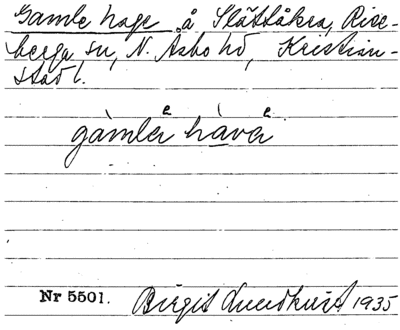 Gamle hage å Slättåkra, Rise-
berga sn, N. Åsbo hd, Kristian-
stad l.
gàmlå hàvå
e e
Nr 5501. Birgit Lundkvist 1935